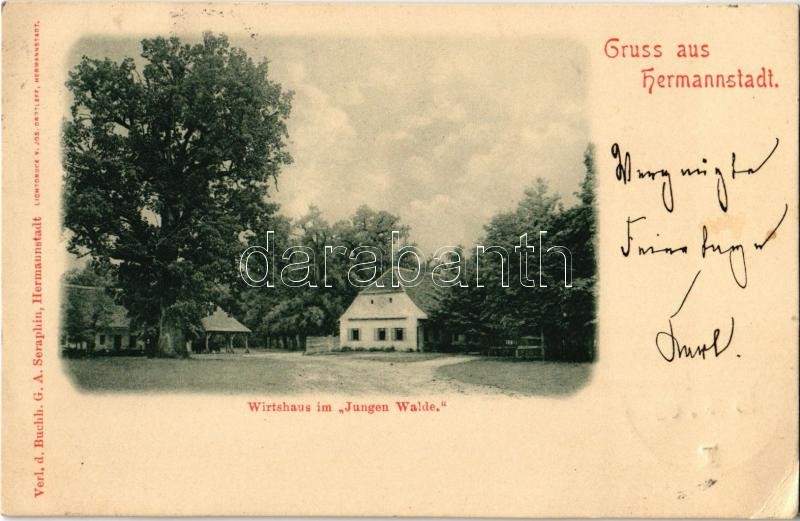 Gruss aus
Hermannstadt.
Vergnügte
Feiertage
Karl.
darabanth
Wirtshaus im „Jungen Walde."
Verl. d. Buchh. G. A. Seraphin, Hermannstadt
LICHTDRUCK V. JOS. DROTLEFF, HERMANNSTADT.